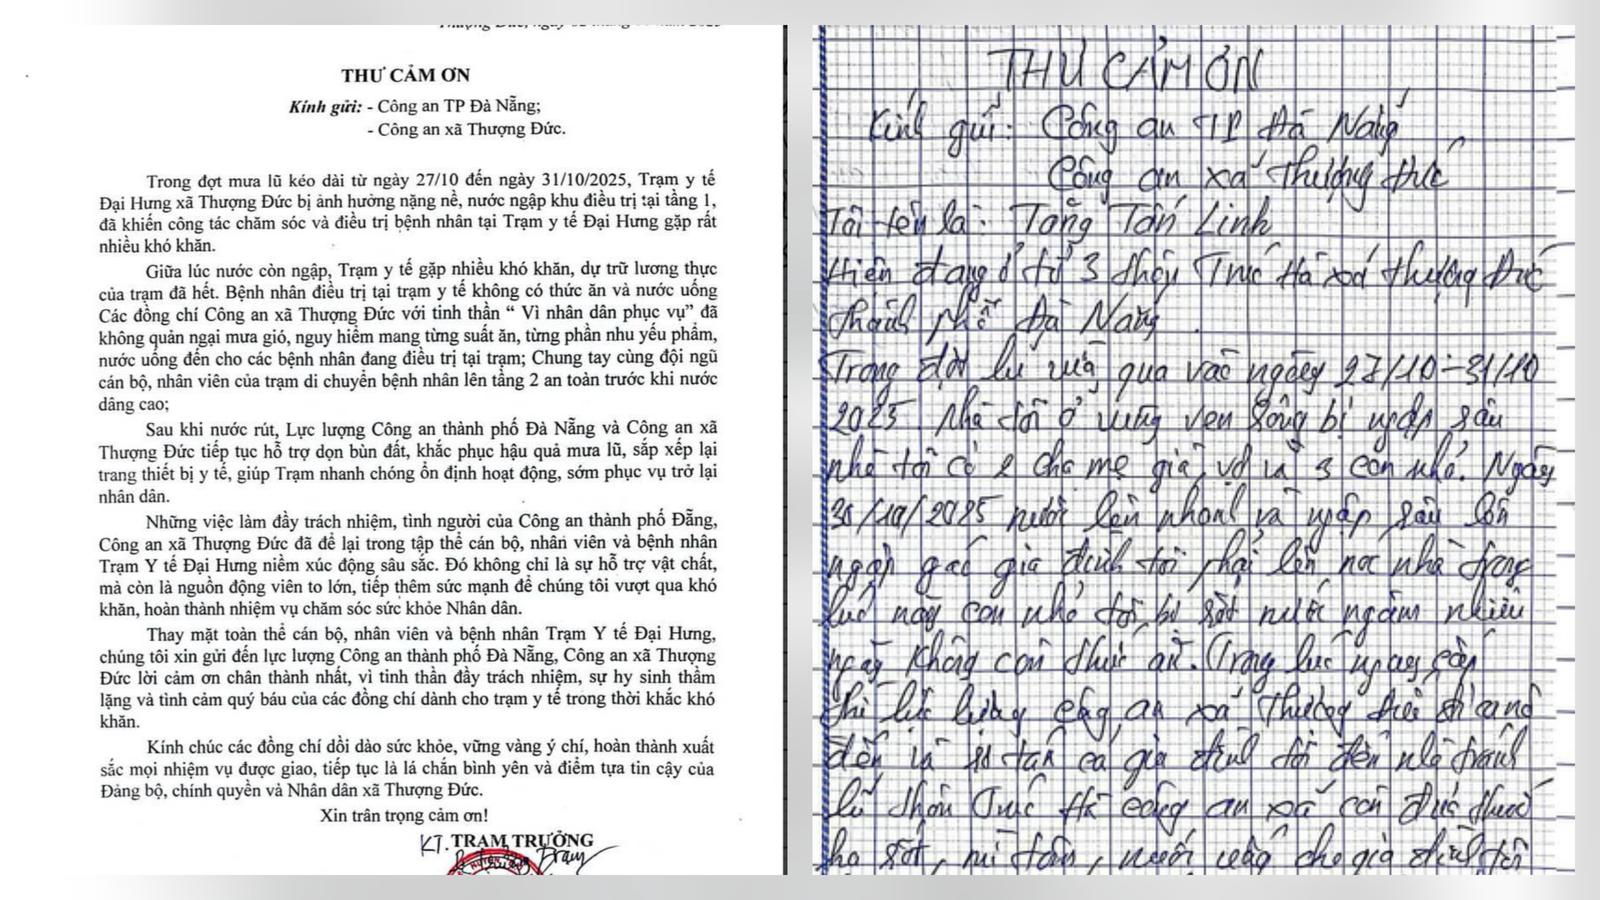 THƯ CẢM ƠN
Kính gửi: - Công an TP Đà Nẵng;
- Công an xã Thượng Đức.
Trong đợt mưa lũ kéo dài từ ngày 27/10 đến ngày 31/10/2025, Trạm y tế
Đại Hưng xã Thượng Đức bị ảnh hưởng nặng nề, nước ngập khu điều trị tại tầng 1,
đã khiến công tác chăm sóc và điều trị bệnh nhân tại Trạm y tế Đại Hưng gặp rất
nhiều khó khăn.
Giữa lúc nước còn ngập, Trạm y tế gặp nhiều khó khăn, dự trữ lương thực
của trạm đã hết. Bệnh nhân điều trị tại trạm y tế không có thức ăn và nước uống
Các đồng chí Công an xã Thượng Đức với tinh thần “ Vì nhân dân phục vụ” đã
không quản ngại mưa gió, nguy hiểm mang từng suất ăn, từng phần nhu yếu phẩm,
nước uống đến cho các bệnh nhân đang điều trị tại trạm; Chung tay cùng đội ngũ
cán bộ, nhân viên của trạm di chuyển bệnh nhân lên tầng 2 an toàn trước khi nước
dâng cao;
Sau khi nước rút, Lực lượng Công an thành phố Đà Nẵng và Công an xã
Thượng Đức tiếp tục hỗ trợ dọn bùn đất, khắc phục hậu quả mưa lũ, sắp xếp lại
trang thiết bị y tế, giúp Trạm nhanh chóng ổn định hoạt động, sớm phục vụ trở lại
nhân dân.
Những việc làm đầy trách nhiệm, tình người của Công an thành phố Đẵng,
Công an xã Thượng Đức đã để lại trong tập thể cán bộ, nhân viên và bệnh nhân
Trạm Y tế Đại Hưng niềm xúc động sâu sắc. Đó không chỉ là sự hỗ trợ vật chất,
mà còn là nguồn động viên to lớn, tiếp thêm sức mạnh để chúng tôi vượt qua khó
khăn, hoàn thành nhiệm vụ chăm sóc sức khỏe Nhân dân.
Thay mặt toàn thể cán bộ, nhân viên và bệnh nhân Trạm Y tế Đại Hưng,
chúng tôi xin gửi đến lực lượng Công an thành phố Đà Nẵng, Công an xã Thượng
Đức lời cảm ơn chân thành nhất, vì tinh thần đầy trách nhiệm, sự hy sinh thầm
lặng và tình cảm quý báu của các đồng chí dành cho trạm y tế trong thời khắc khó
khăn.
Kính chúc các đồng chí dồi dào sức khỏe, vững vàng ý chí, hoàn thành xuất
sắc mọi nhiệm vụ được giao, tiếp tục là lá chắn bình yên và điểm tựa tin cậy của
Đảng bộ, chính quyền và Nhân dân xã Thượng Đức.
Xin trân trọng cảm ơn!
KT. TRẠM TRƯỞNG
THƯ CẢM ƠN
Kính gửi: Công an TP Đà Nẵng
Công an xã Thượng Đức
Tôi tên là: Tăng Tấn Linh
Hiện đang ở tổ 3 thôn Trúc Hà xã Thượng Đức
thành phố Đà Nẵng.
Trong đợt lũ vừa qua vào ngày 27/10-31/10
2025 nhà tôi ở vùng ven sông bị ngập sâu
nhà tôi có 2 cha mẹ già, vợ và 3 con nhỏ. Ngày
30/10/2025 nước lên nhanh và ngập sâu lên
ngập gác gia đình tôi phải lên nóc nhà trong
lúc này con nhỏ tôi bị sốt nước ngâm nhiều
ngày không còn thức ăn. Trong lúc nguy cấp
thì lực lượng công an xã Thượng Đức đi cano
đến và di tản cả gia đình tôi đến nhà tránh
lũ thôn Trúc Hà công an xã còn đưa thuốc
hạ sốt, mì tôm, nước uống cho gia đình tôi